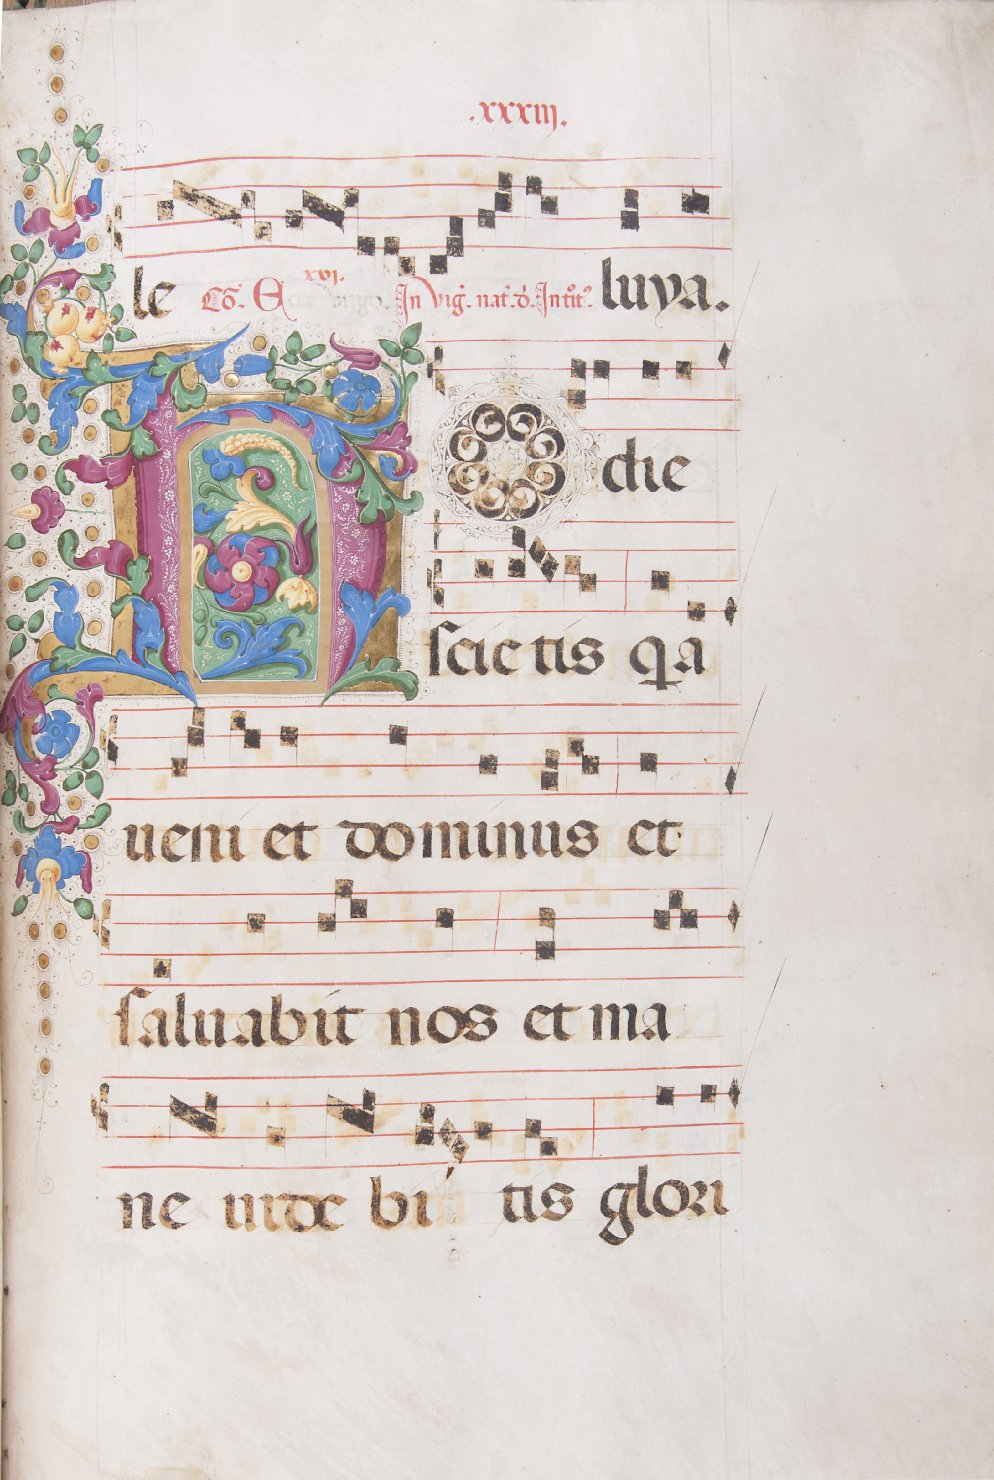 .xxxiii.
le luya.
xvi.
Co. Ecce virgo. In vig. nat. d. Introit.
HO die
scietis q̄a
ueni et dominus et
saluabit nos et ma
ne uide bi tis glori